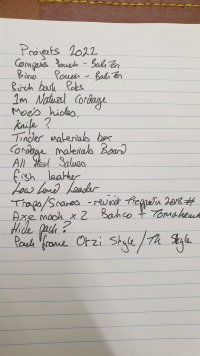 Projects 2022
Compass Pouch -
Bino Pouch -
Birch bark Pots
1m Natural Cordage
Moe's hides.
Knife ?
Tinder materials box
Cordage materials Board
All Heal Salves
fish leather
Low Land Leader
Traps/Snares - revisit 2018 #
Axe mask x 2 Bahco + Tomahawk
Hide pack ?
Pack frame Otzi Style / Style